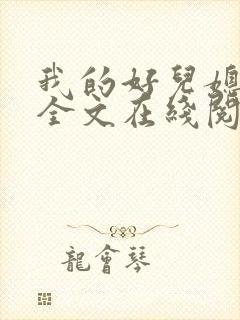 我的好兒媳
全文在綫閱
龍會琴